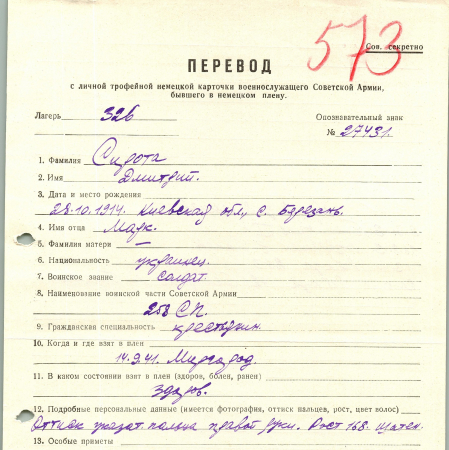 573
Сов. секретно
ПЕРЕВОД
с личной трофейной немецкой карточки военнослужащего Советской Армии,
бывшего в немецком плену.
Лагерь 326 Опознавательный знак
№ 27431.
1. Фамилия Сирота
2. Имя Дмитрий.
3. Дата и место рождения
28.10.1914. Киевская обл., с. Березань.
4. Имя отца Марк.
5. Фамилия матери —
6. Национальность украинец.
7. Воинское звание солдат
8. Наименование воинской части Советской Армии
258 СП.
9. Гражданская специальность крестьянин.
10. Когда и где взят в плен
14.9.41. Миргород.
11. В каком состоянии взят в плен (здоров, болен, ранен)
здоров.
12. Подробные персональные данные (имеется фотография, оттиск пальцев, рост, цвет волос)
Оттиск указат. пальца правой руки. Рост 168. шатен.
13. Особые приметы